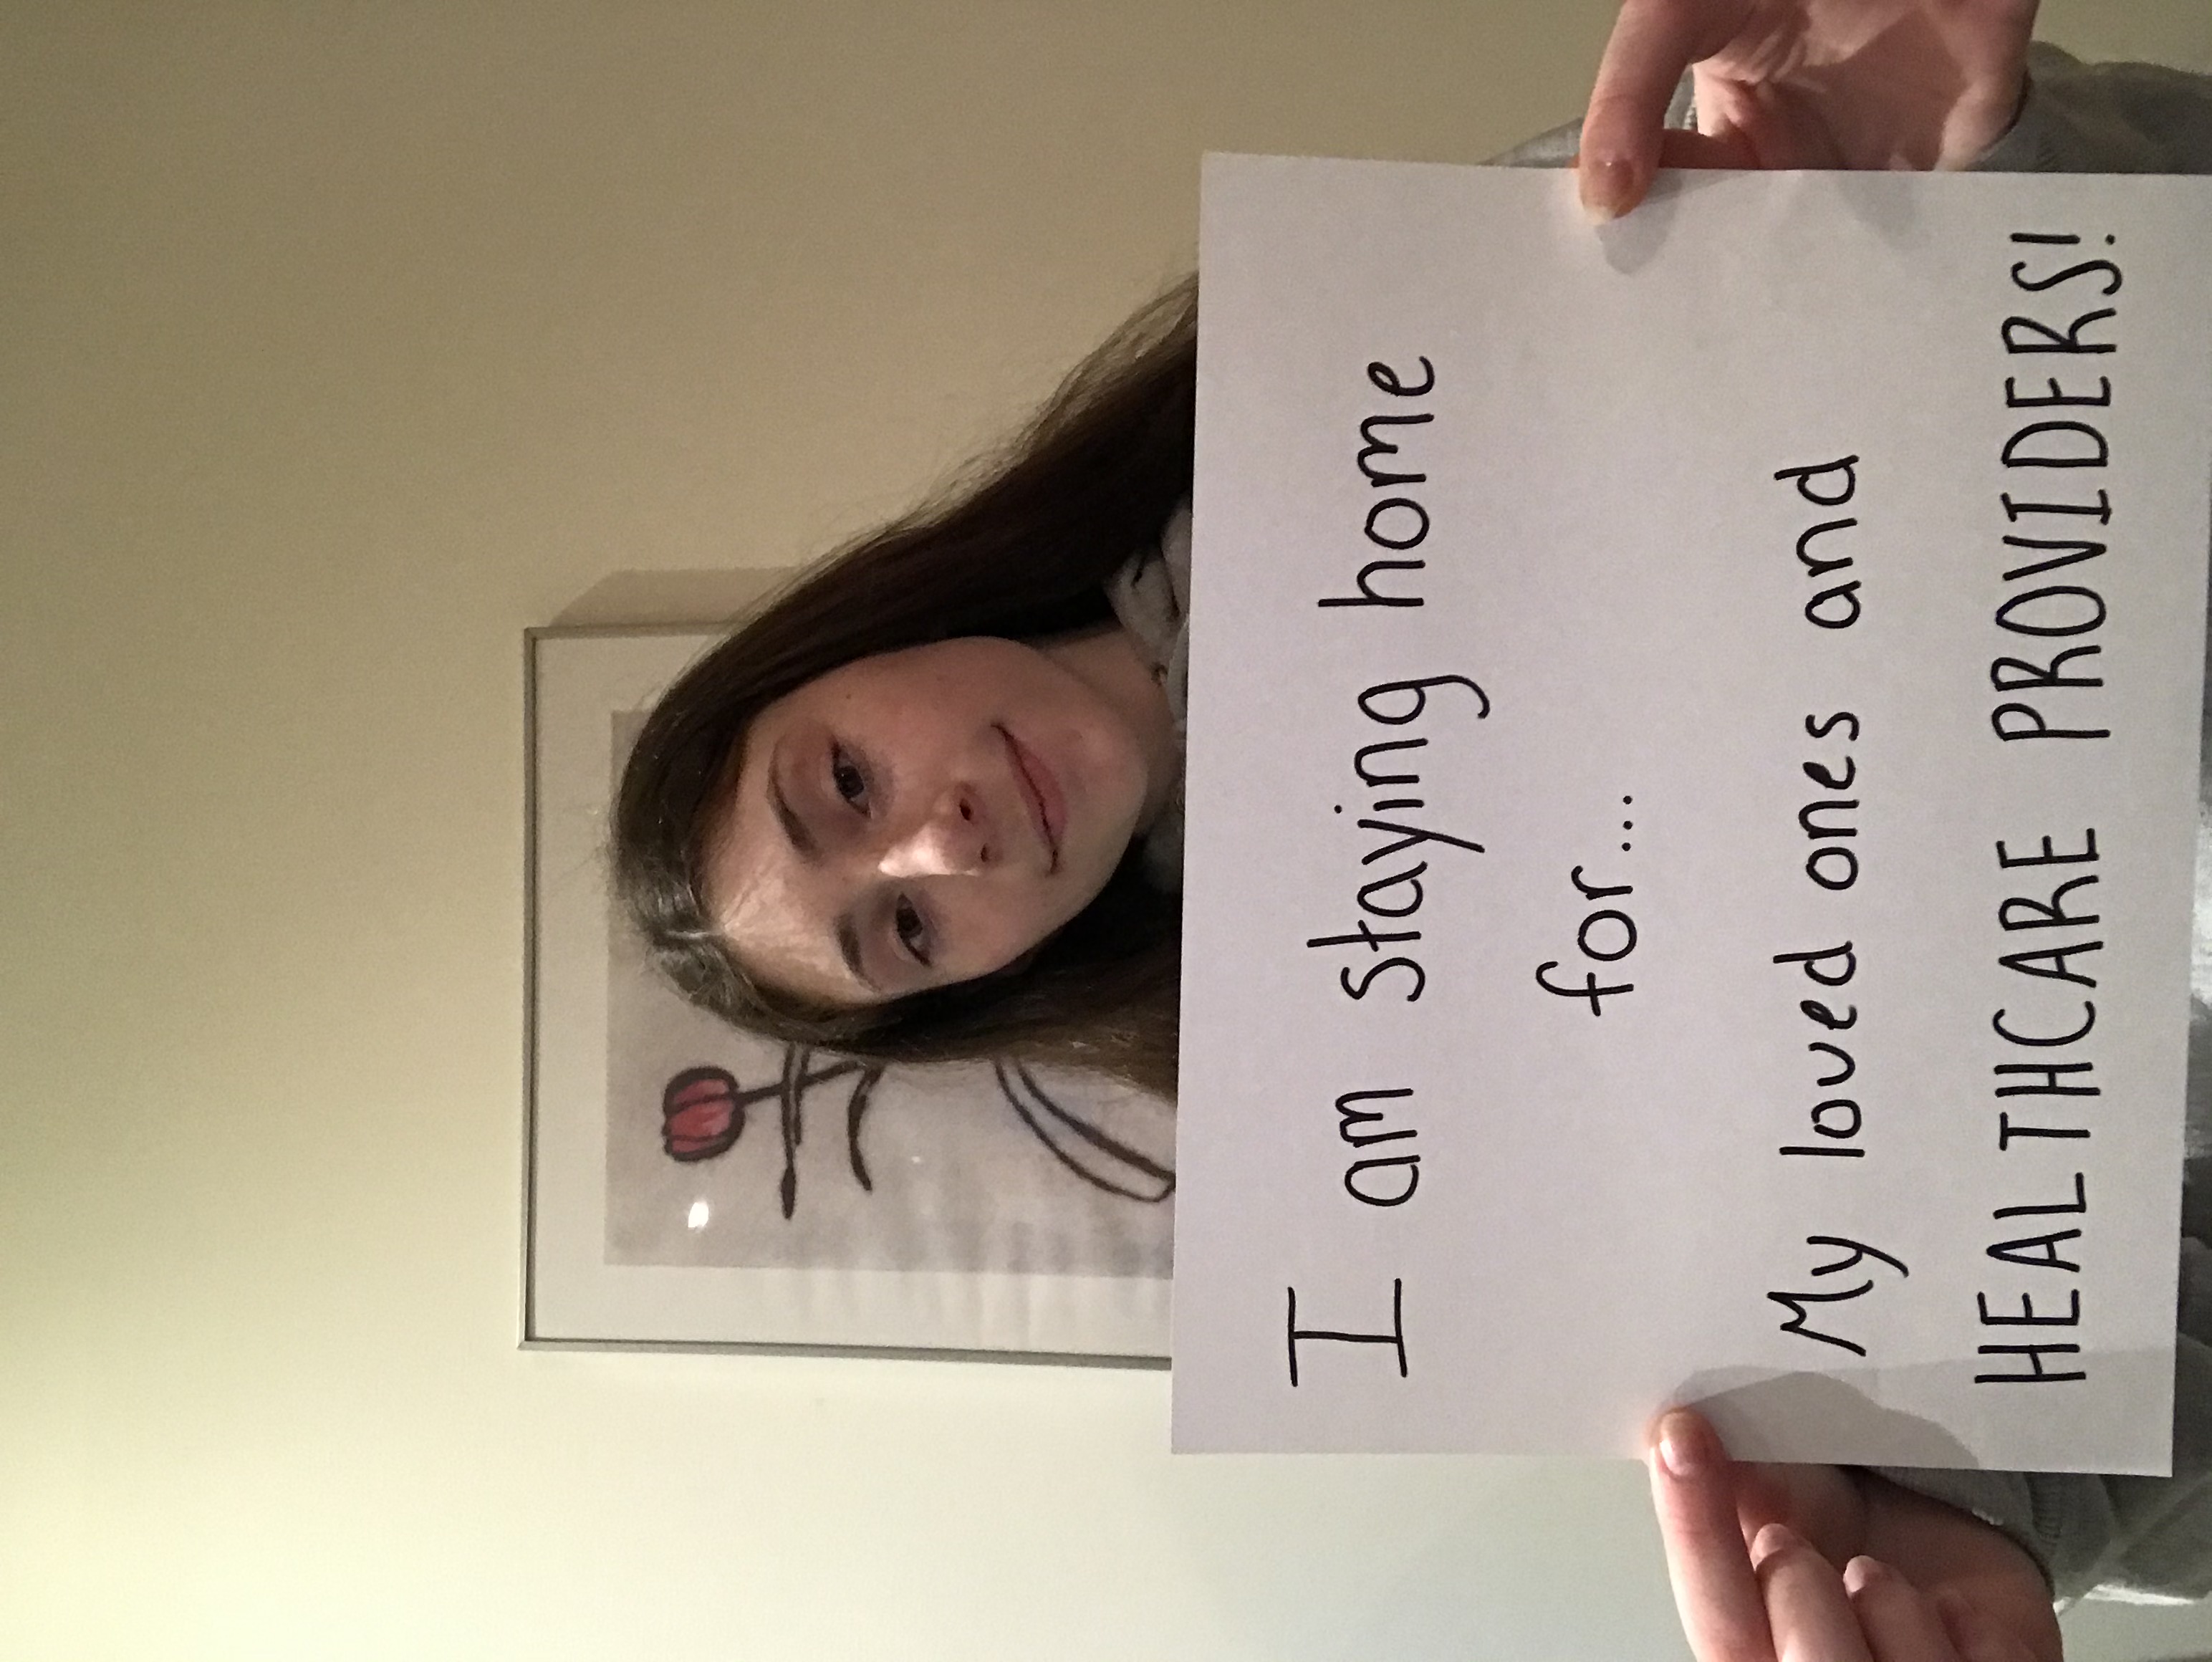 I am staying home
for...
My loved ones and
HEALTHCARE PROVIDERS!